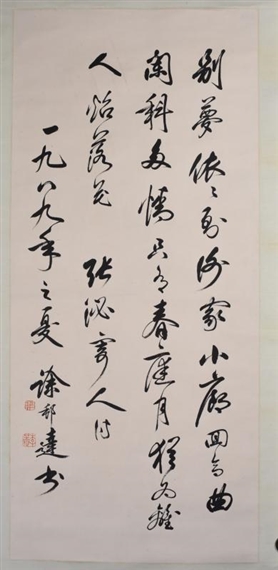 別夢依〻到謝家小廊囘合曲
闌斜多情只有春庭月猶為離
人照落花 張泌寄人詩
一九八九年之夏 徐邦達书